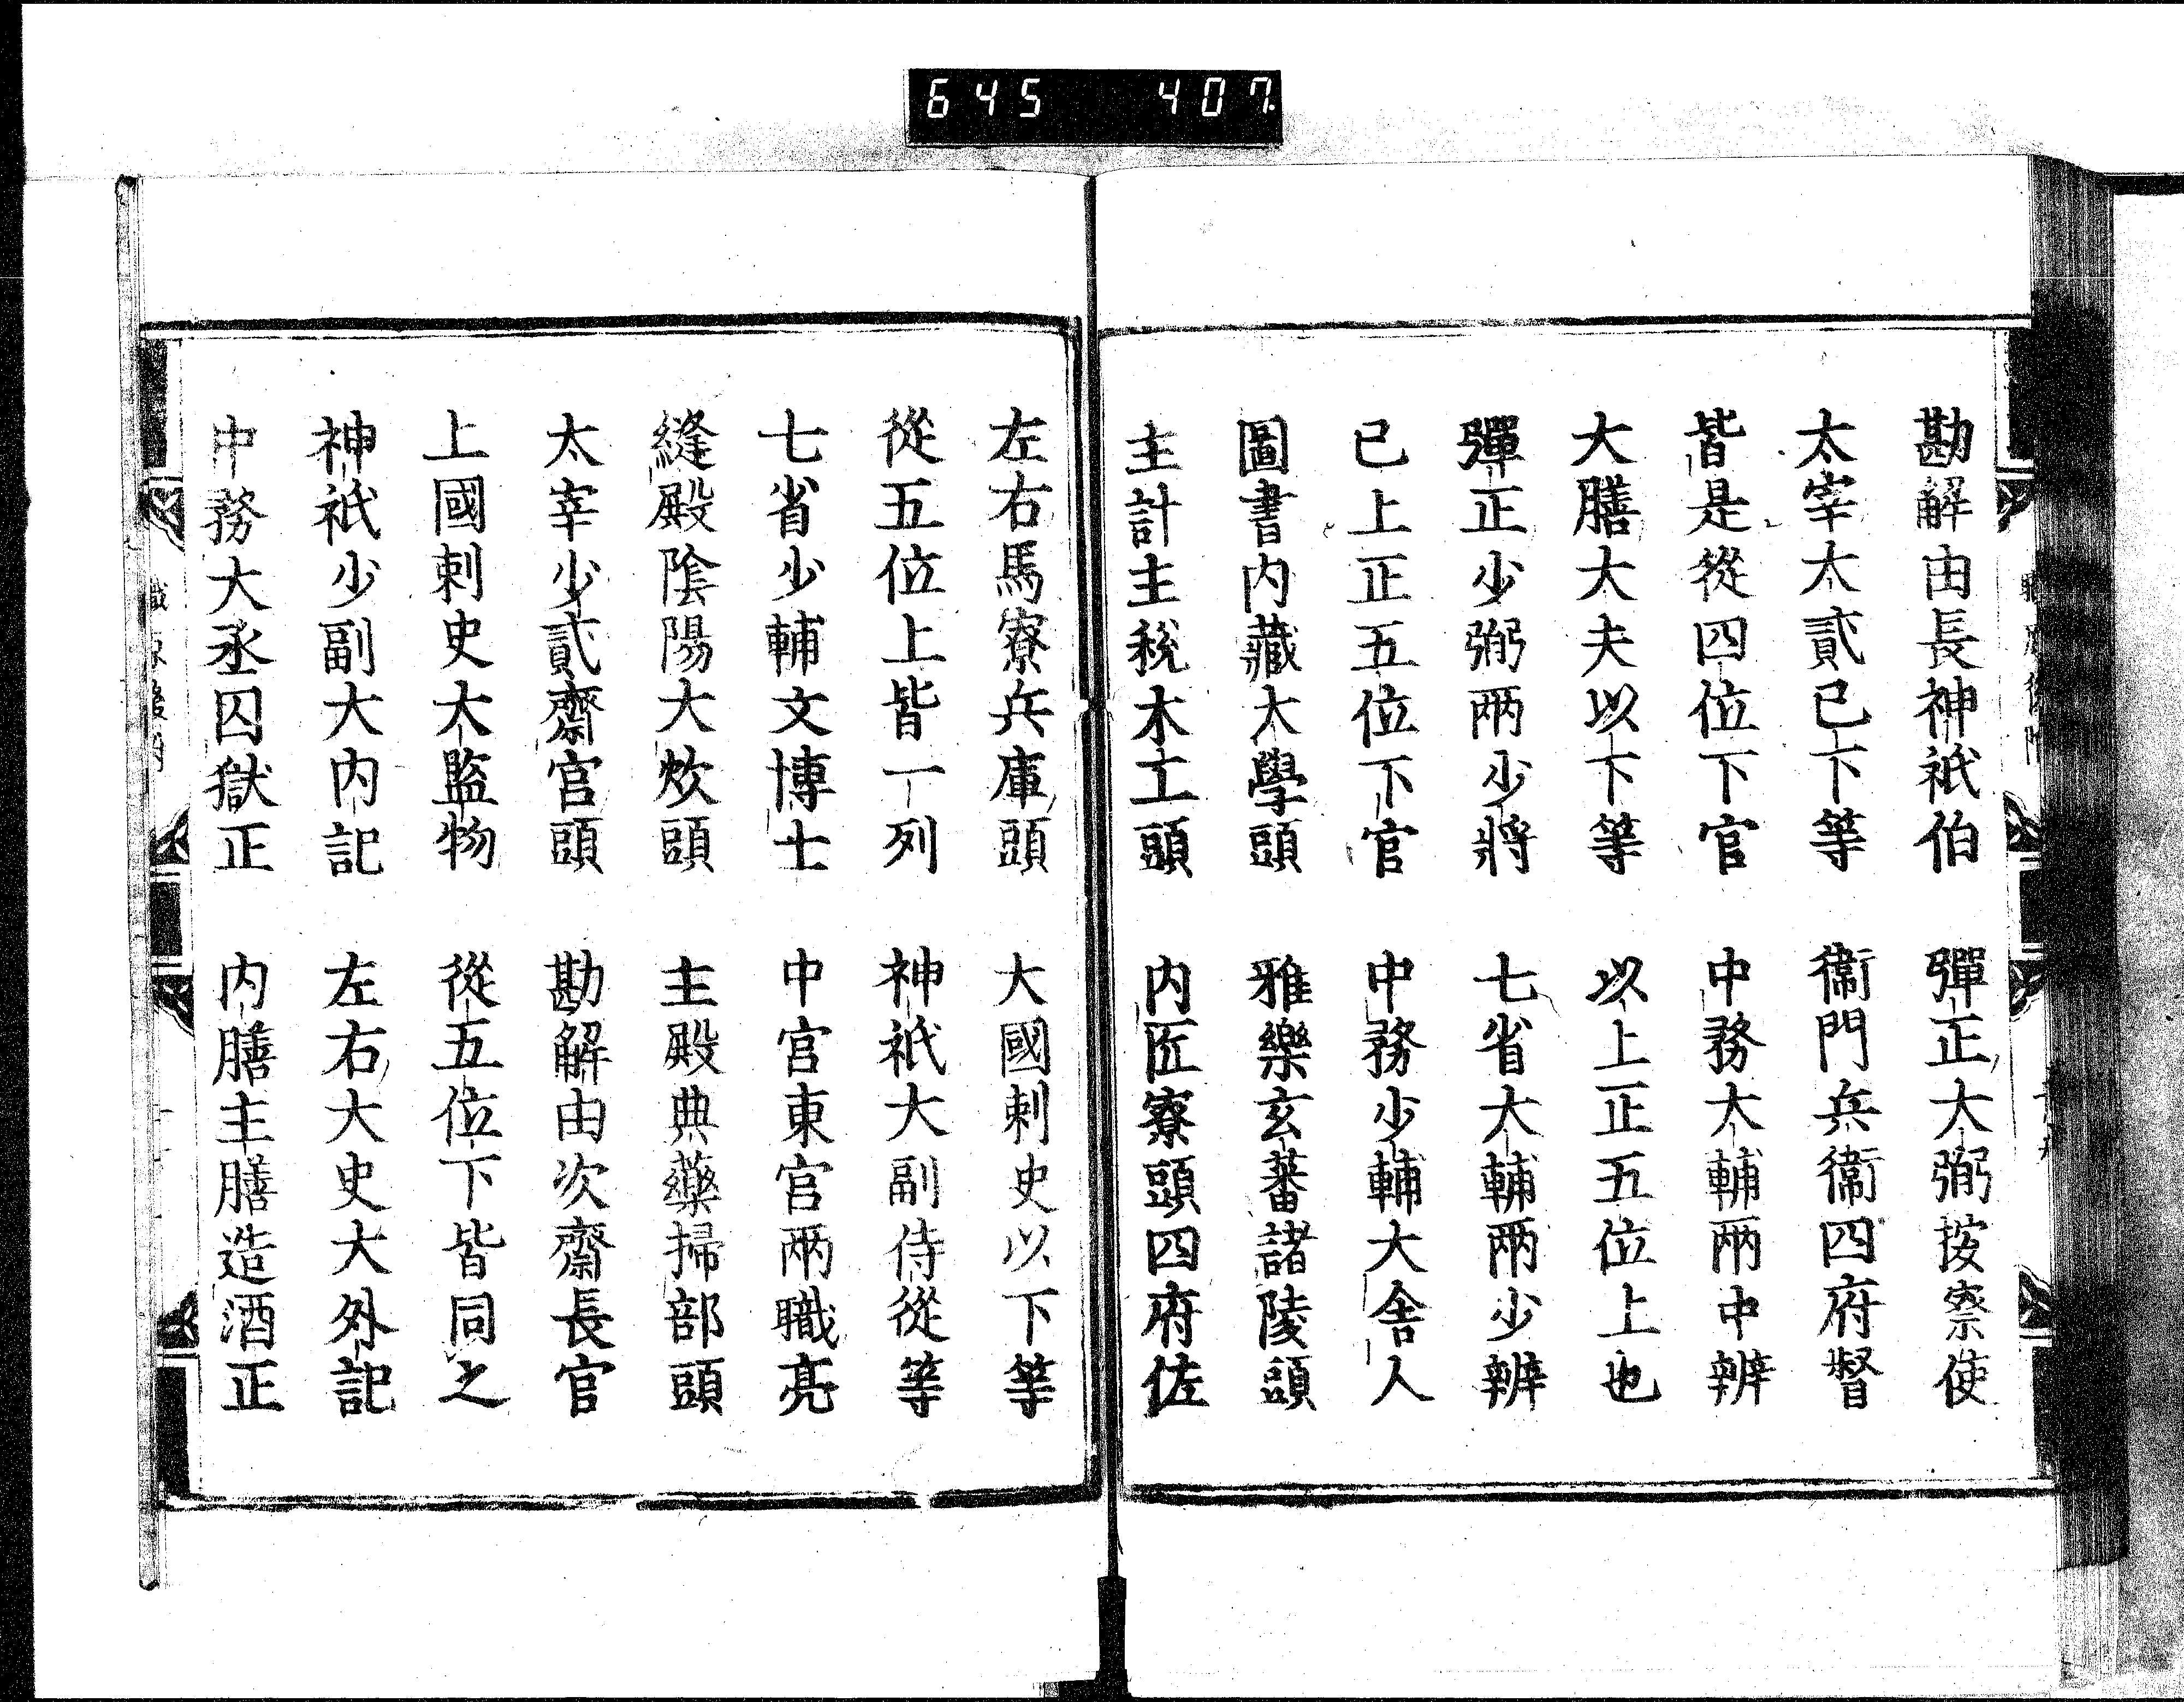 645 407
勘解由長神祇伯 彈正大弼按察使
太宰大貳已下等 衞門兵衞四府督
皆是從四位下官 中務大輔兩中辨
大膳大夫以下等 以上正五位上也
彈正少弼兩少將 七省大輔兩少辨
已上正五位下官 中務少輔大舍人
圖書内藏大學頭 雅樂玄蕃諸陵頭
主計主税木工頭 内匠寮頭四府佐
左右馬寮兵庫頭 大國刺史以下等
從五位上皆一列 神祇大副侍從等
七省少輔文博士 中宮東宮兩職亮
縫殿陰陽大炊頭 主殿典藥掃部頭
太宰少貳齋宮頭 勘解由次齋長官
上國刺史大監物 從五位下皆同之
神祇少副大内記 左右大史大外記
中務大丞囚獄正 内膳主膳造酒正